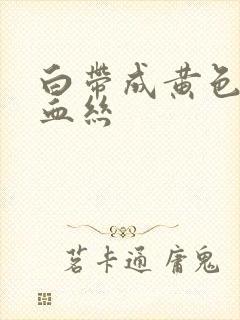 白帶成黃色
血絲
茗卡通 庸鬼